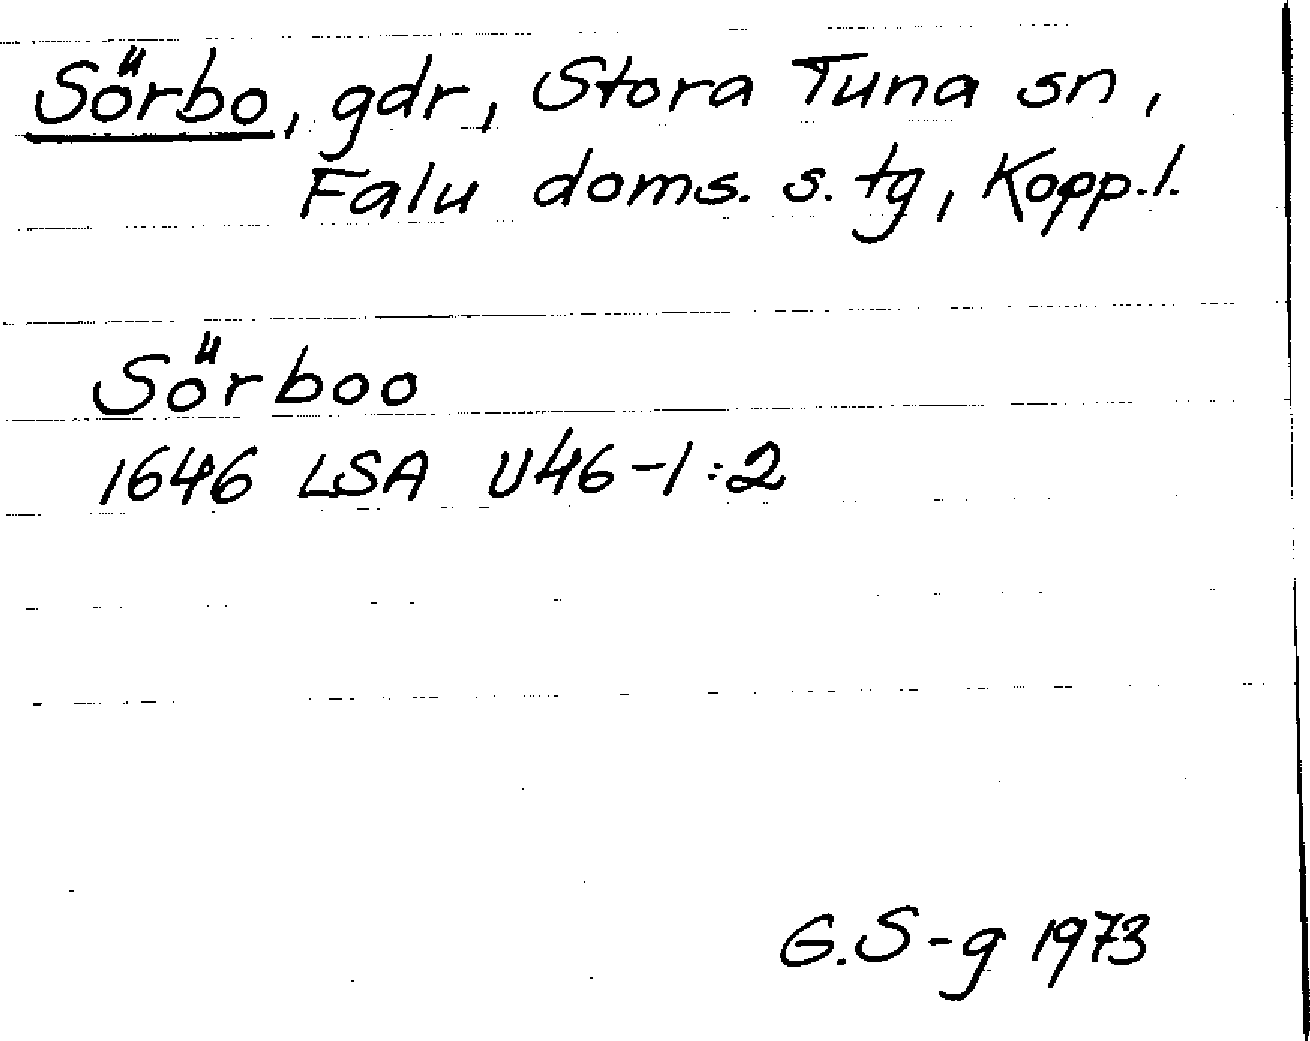 Sörbo, gdr, Stora Tuna sn,
Falu doms. s. tg, Kopp.l.
Sörboo
1646 LSA U46-1:2
G.S-g 1973